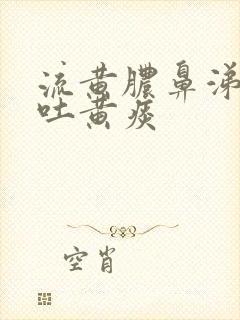 流黄脓鼻涕
吐黄痰
空肖